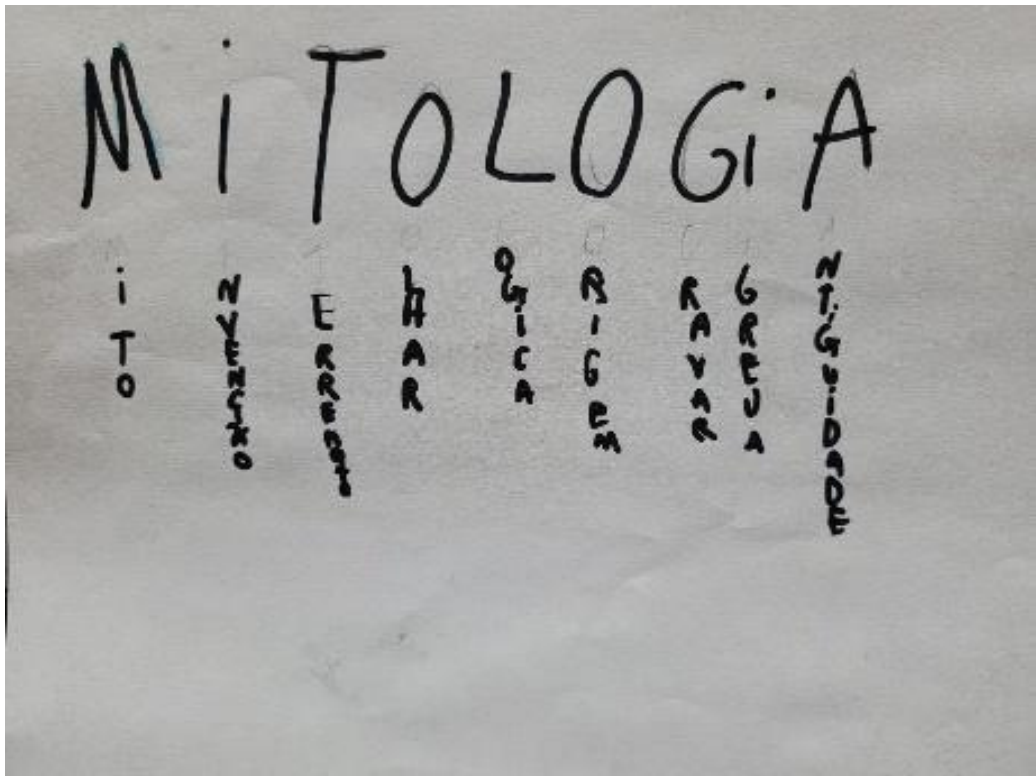 MiTOLOGiA
iTO
NVENÇÃO
ERREMOTO
LHAR
OGiCA
RIGEM
RAVAR
GREJA
NTiGUiDADE